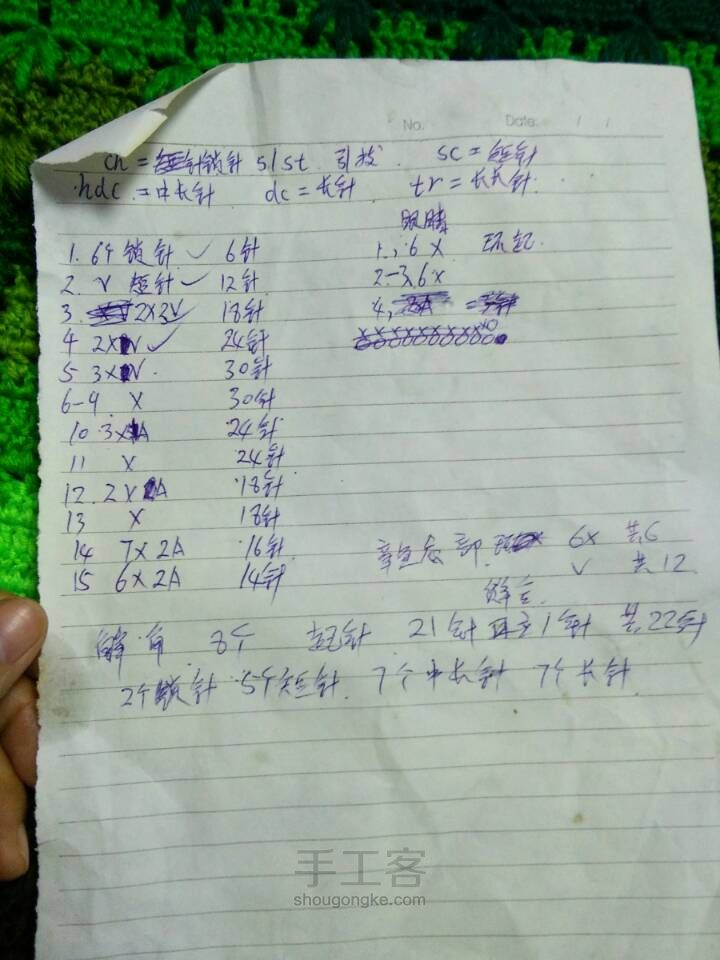 No. Date: / /
ch = 针锁针 slst 引拔. sc = 短针
hdc. = 中长针 dc = 长针 tr = 长长针.
眼睛
1. 6个锁针 ✓ 6针 1, 6X 环起.
2. V 短针 ✓ 12针. 2-3,6X
3. 2X3V ✓ 18针 4,
4 2X V ✓ 24针
5 3X V. 30针
6-9 X 30针
10. 3X A 24针
11 X 24针
12. 2X A 18针
13 X 18针
14 7X 2A 16针
15 6X 2A 14针
部 6X 共6
V 共12
8个 起针 21针 1针 共22针
2个锁针 5个短针 7个中长针 7个长针
手工客
shougongke.com